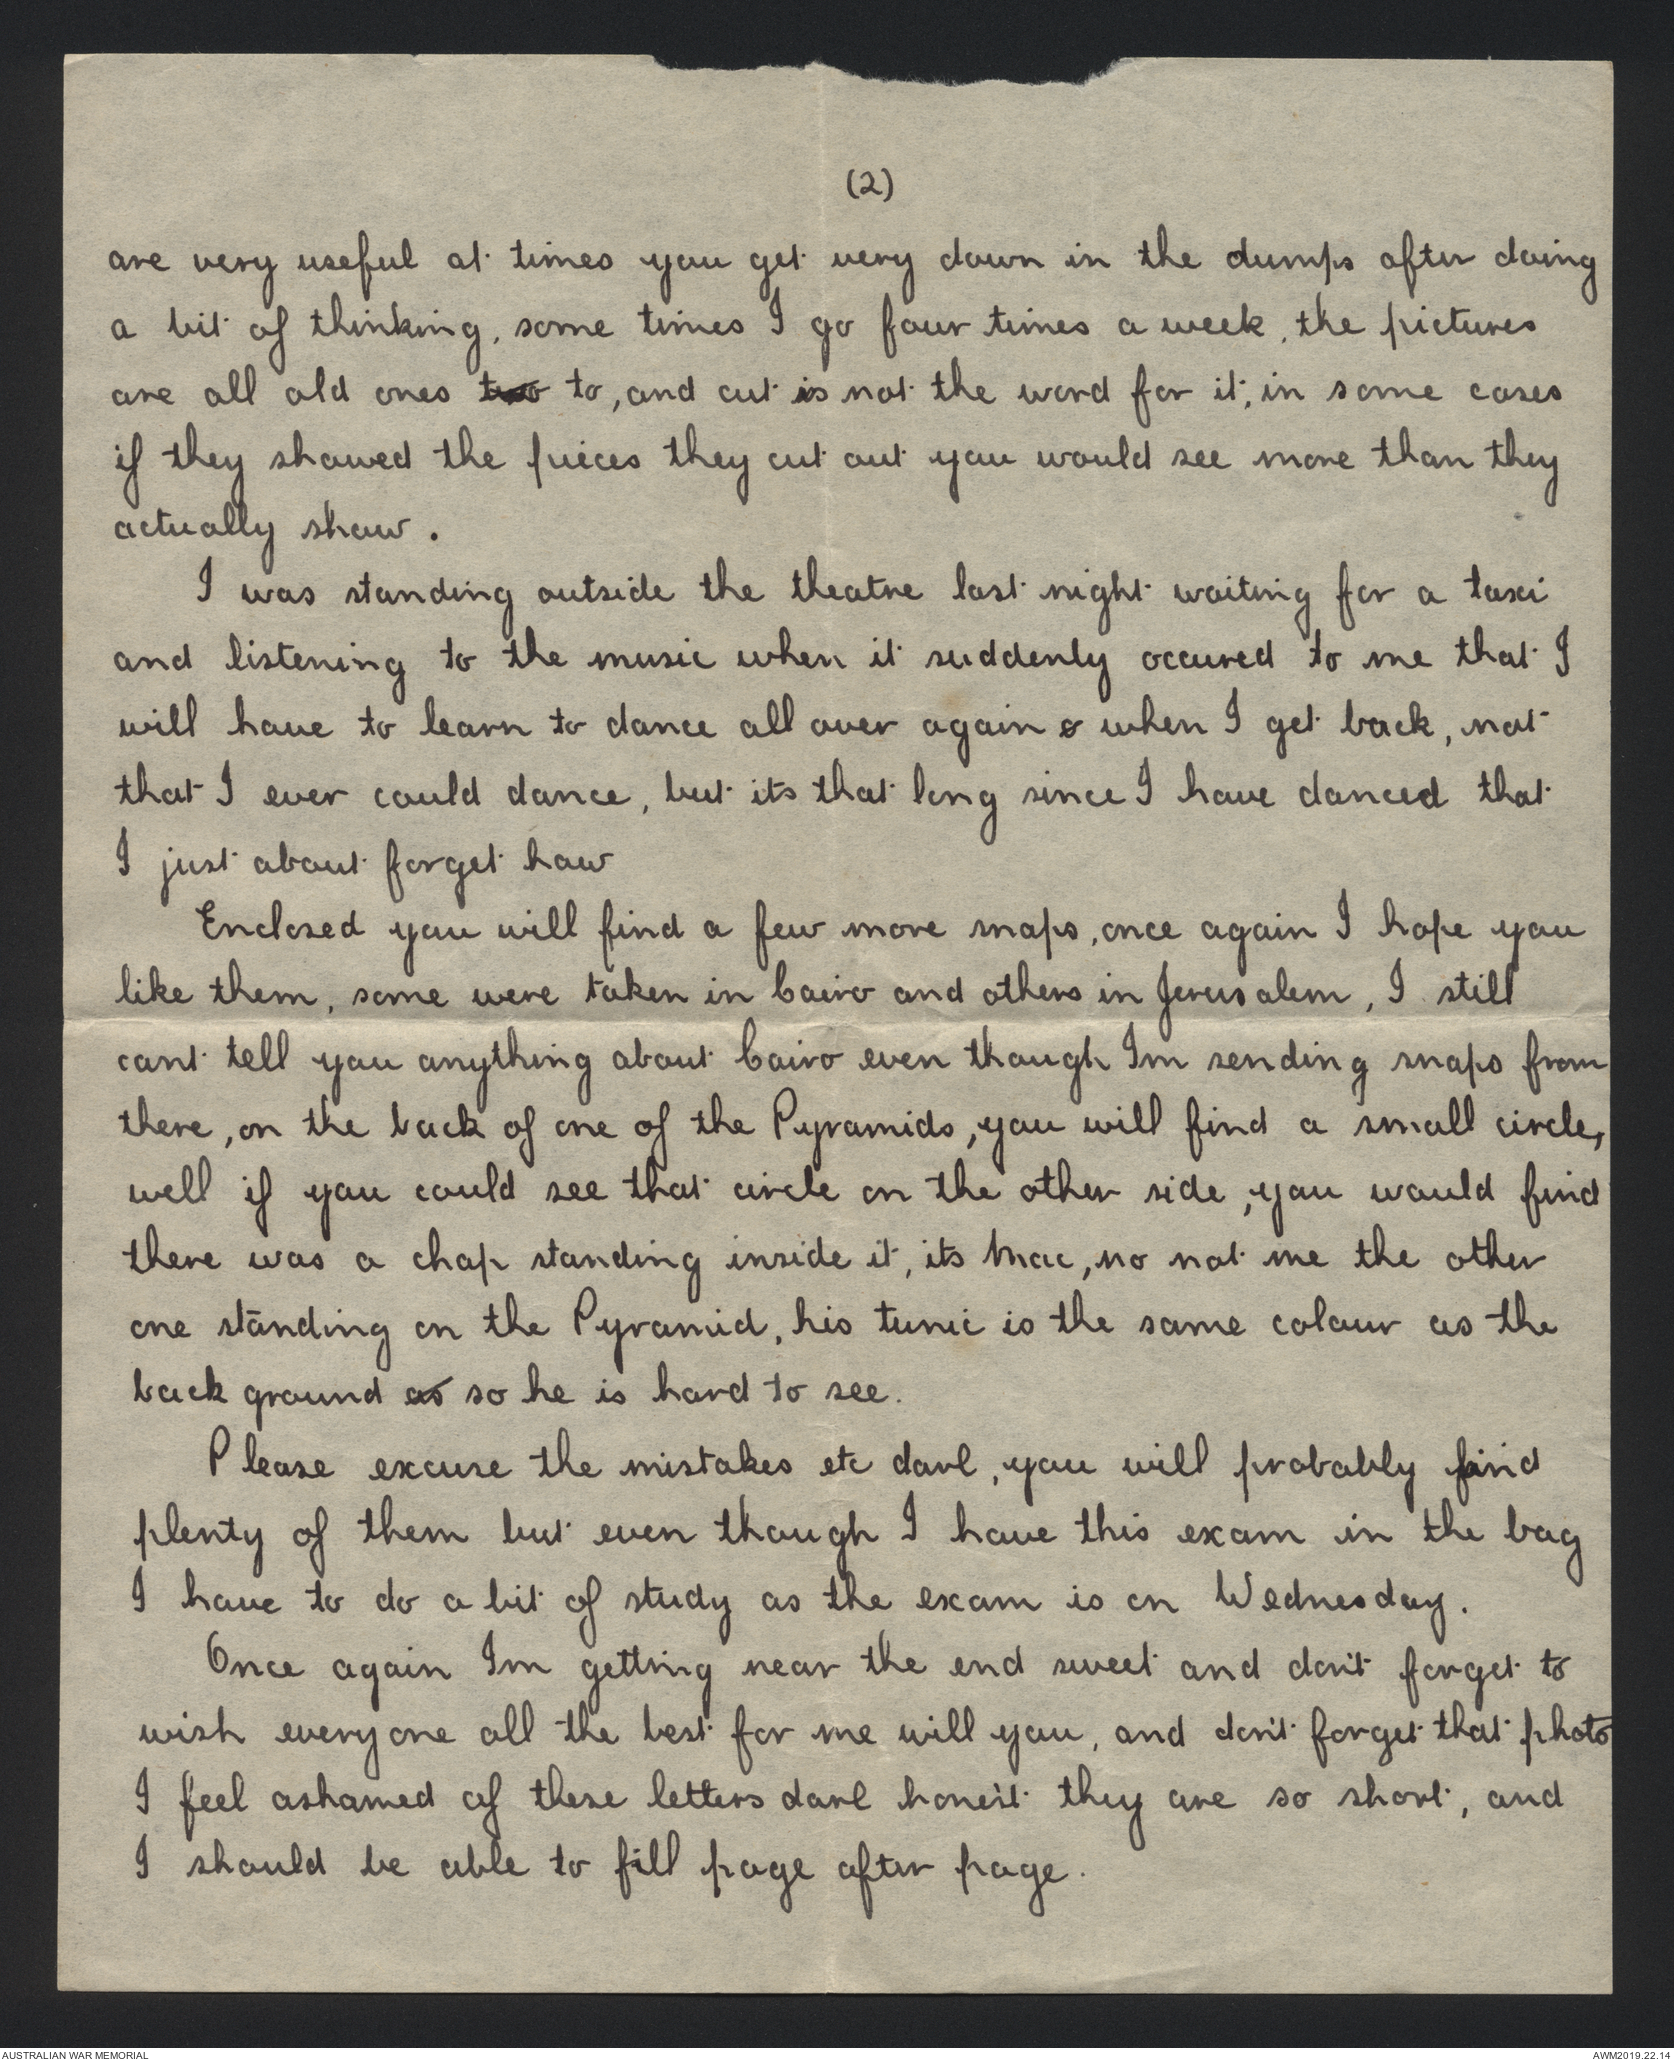 (2)
are very useful at times you get very down in the dumps after doing
a bit of thinking, some times I go four times a week, the pictures
are all old ones two to, and cut is not the word for it, in some cases
if they showed the pieces they cut out you would see more than they
actually show.
I was standing outside the theatre last night waiting for a taxi
and listening to the music when it suddenly occured to me that I
will have to learn to dance all over again & when I get back, not
that I ever could dance, but its that long since I have danced that
I just about forget how
Enclosed you will find a few more snaps, once again I hope you
like them, some were taken in Cairo and others in Jerusalem, I still
cant tell you anything about Cairo even though Im sending snaps from
there, on the back of one of the Pyramids, you will find a small circle,
well if you could see that circle on the other side, you would find
there was a chap standing inside it, its Mac, no not me the other
one standing on the Pyramid, his tunic is the same colour as the
back ground as so he is hard to see.
Please excuse the mistakes etc darl, you will probably find
plenty of them but even though I have this exam in the bag
I have to do a bit of study as the exam is on Wednesday.
Once again Im getting near the end sweet and don't forget to
wish everyone all the best for me will you, and don't forget that photo
I feel ashamed of these letters darl hone'st they are so short, and
I should be able to fill page after page.
AUSTRALIAN WAR MEMORIAL
AWM2019.22.14